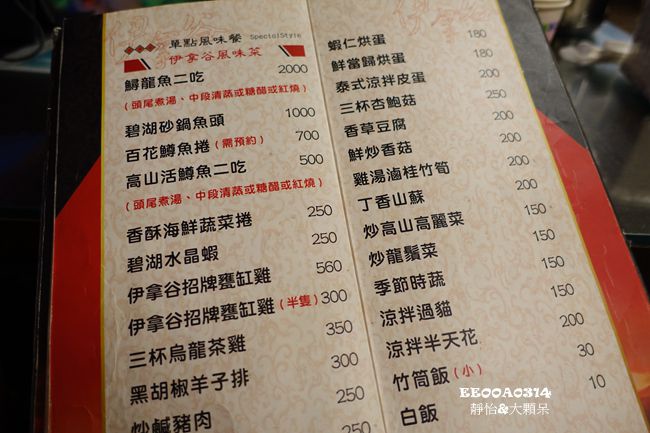 單點風味餐 SpecialStyle
伊拿谷風味菜
鱘龍魚二吃 2000
(頭尾煮湯、中段清蒸或糖醋或紅燒)
碧湖砂鍋魚頭 1000
百花鱒魚捲(需預約) 700
高山活鱒魚二吃 500
(頭尾煮湯、中段清蒸或糖醋或紅燒)
香酥海鮮蔬菜捲 250
碧湖水晶蝦 250
伊拿谷招牌甕缸雞 560
伊拿谷招牌甕缸雞(半隻) 300
三杯烏龍茶雞 350
黑胡椒羊子排 300
炒鹹豬肉 250
蝦仁烘蛋 180
鮮當歸烘蛋 180
泰式涼拌皮蛋 200
三杯杏鮑菇 200
香草豆腐 200
鮮炒香菇 200
雞湯滷桂竹筍 200
丁香山蘇 200
炒高山高麗菜 150
炒龍鬚菜 150
季節時蔬 150
涼拌過貓 150
涼拌半天花 200
竹筒飯(小) 30
白飯 10
EE00A0314
靜怡&大顆呆